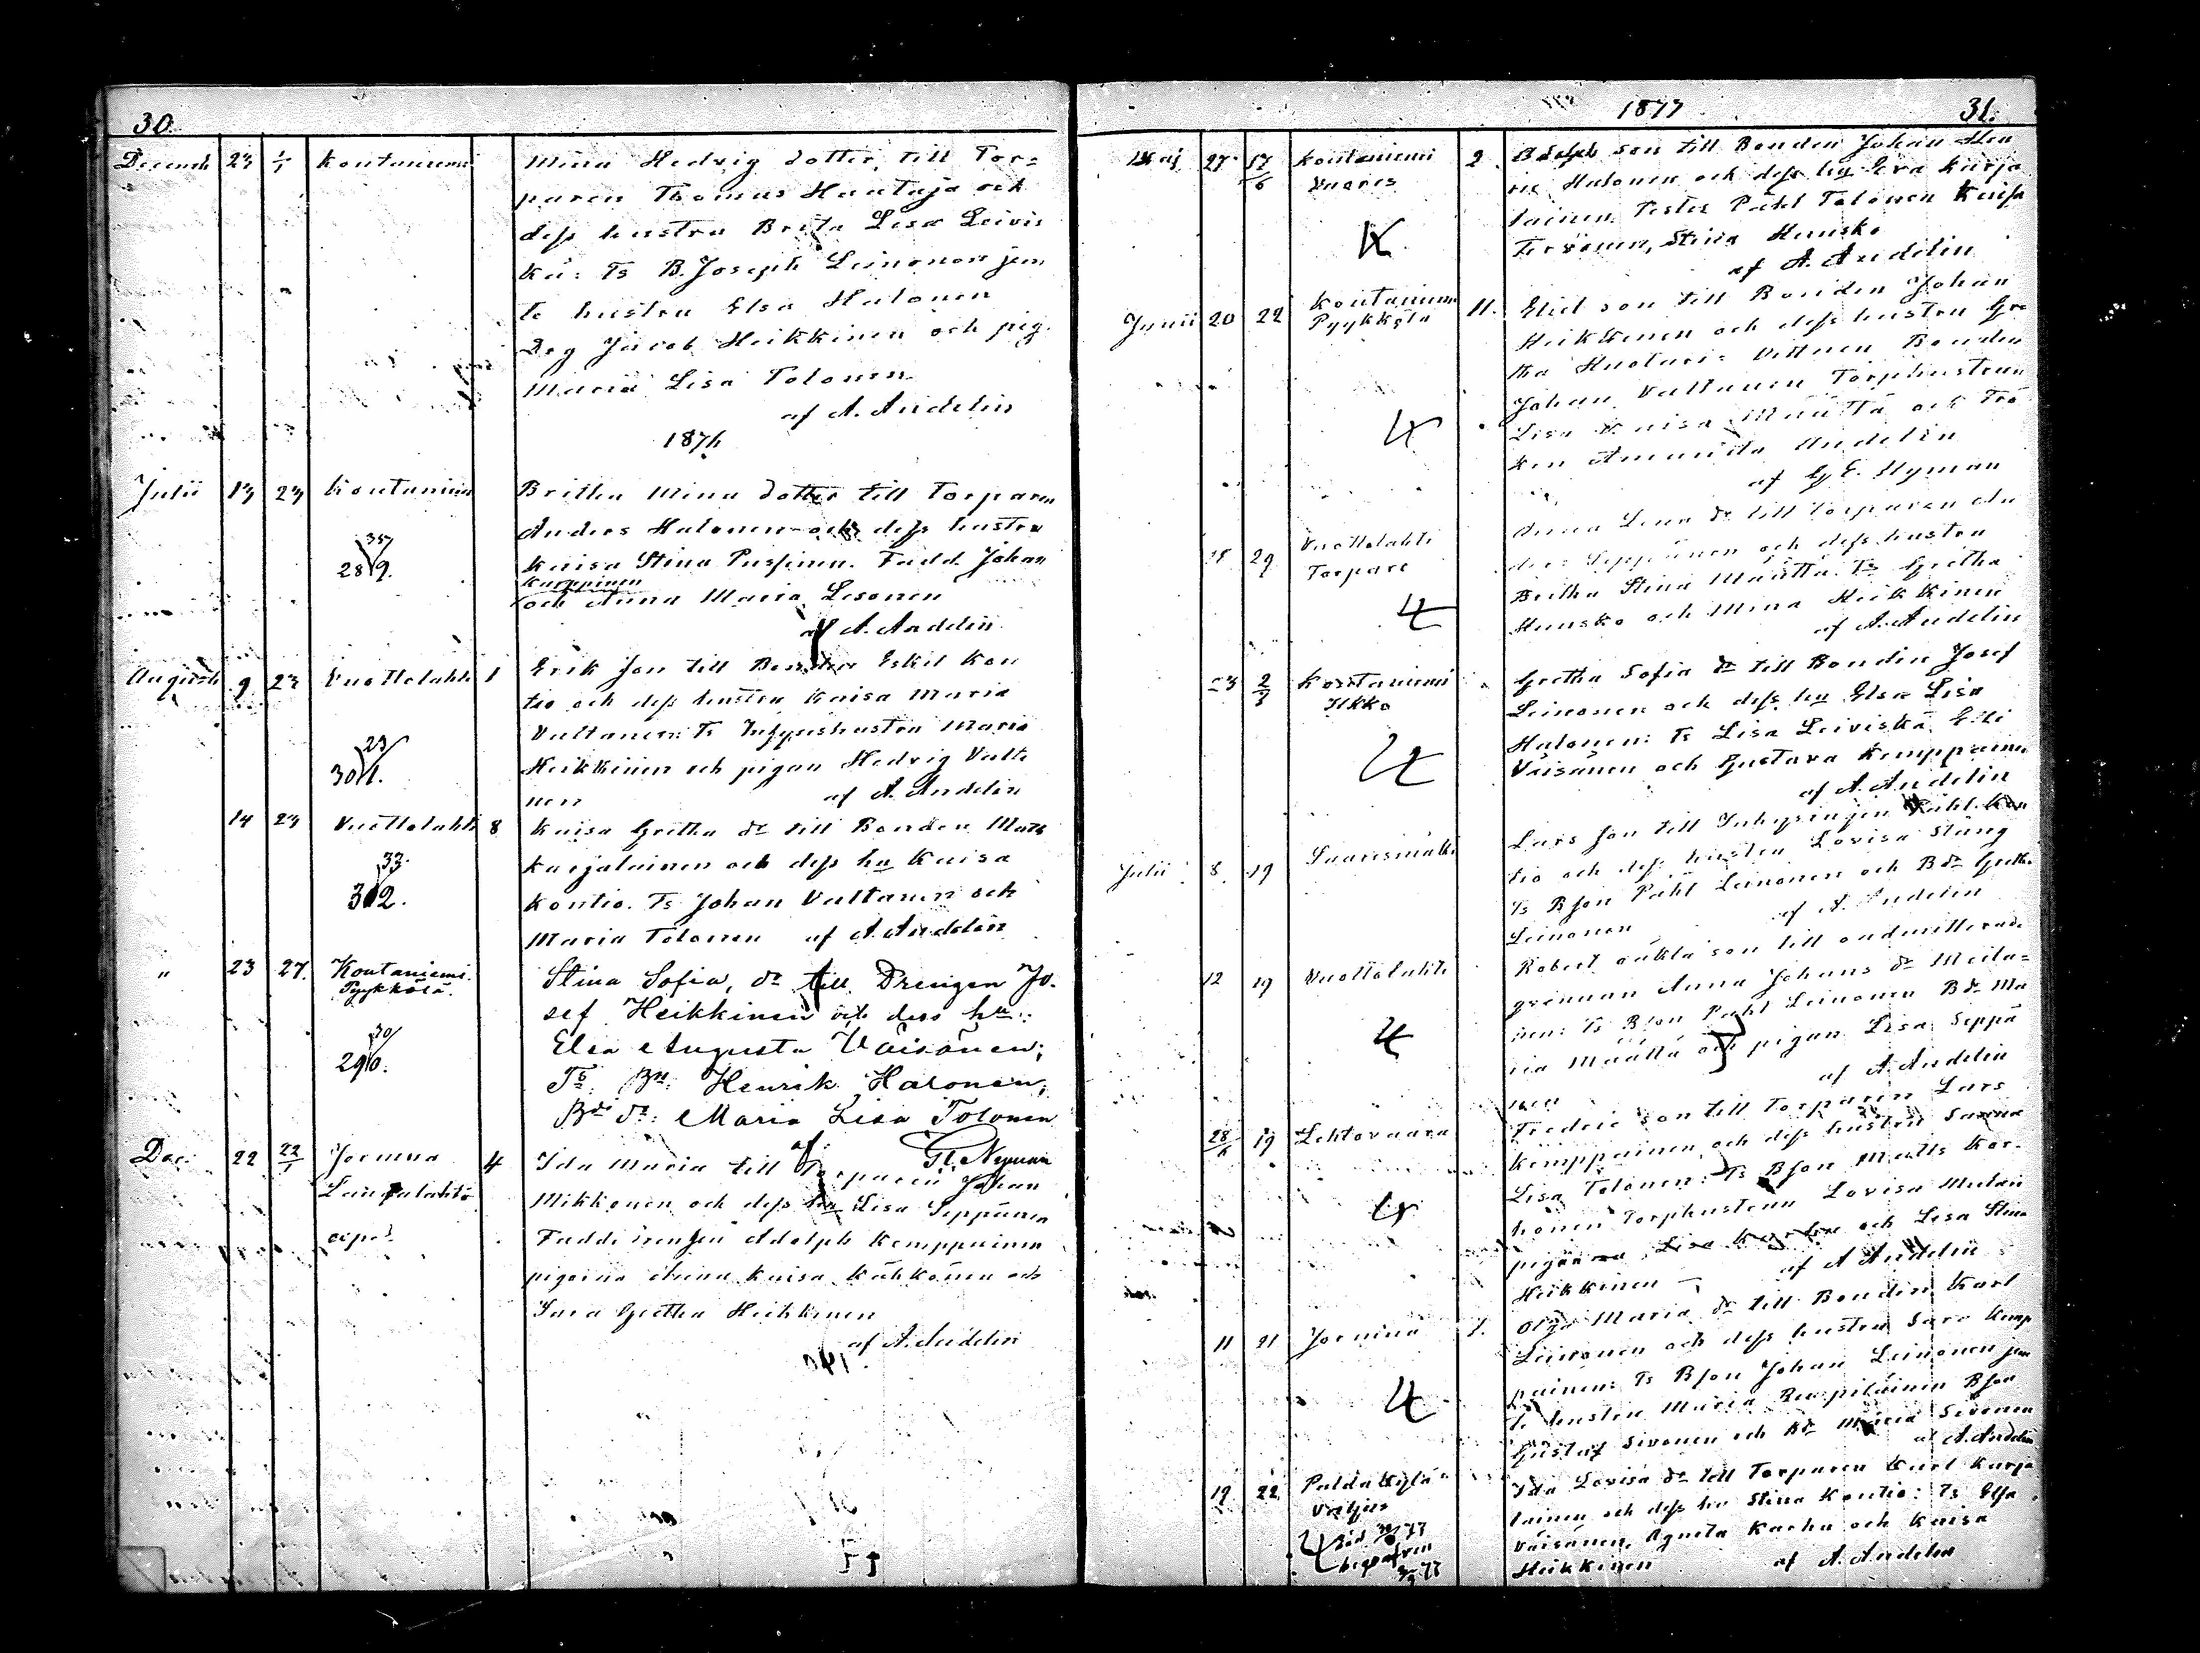 30.
Decemb 23 1/1 Koutaniemi Mina Hedvig dotter till Tor=
paren Thomas Hautaja och
dess hustru Brita Lisa Leivis
kä: Ts B. Joseph Leinonen jem
te hustru Elsa Halonen
Drg Jacob Heikkinen och pig.
Maria Lisa Tolonen
af A. Andelin
1876
Julii 13 23 Koutaniemi Britha Mina dotter till Torparen
Anders Halonen och dess hustru
357 Kaisa Stina Puspinen. Fadd. Johan
289. Karppinen
och Anna Maria Lesonen
af A. Andelin
August 9 23 Vuottolahti 1 Erik son till Bonden Eskil Kon
tio och dess hustru Kaisa Maria
Vultanen: Ts Inhyseshustru Maria
23 Heikkinen och pigan Hedvig Vult
301. nen af A. Andelin
14 23 Vuottolahti 8 Kaisa Gretha dr till Bonden Mats
Karjalainen och dess hu Kaisa
33. Kontio. Ts Johan Vultanen och
302. Maria Tolonen af A. Andelin
" 23 27. Koutaniemi Stina Sofia, dr till Drengen Jo-
Pyykkölä. sef Heikkinen och dess hu:
30 Elsa Augusta Väisänen;
290. Ts: Bn: Henrik Halonen;
Bde dr: Maria Lisa Tolonen
af: G. E. Nyman
Dec: 22 22/1 Jormua 4 Ida Maria till Torparen Johan
Mikkonen och dess hu Lisa Seppänen
Fadd: Adolph Kemppainen
pigorna Anna Kaisa Kähkönen och
Sara Gretha Heikkinen
af A. Andelin
1877 31.
Maj 27 17/6 Koutaniemi 2. Adolph son till Bonden Johan Hen
Vuores ric Halonen och dess hu Eva Karja
lainen. Testes Påhl Tolonen Kaisa
Tervonen, Stina Hunsko
af A. Andelin
Junii 20 22 Koutaniemi 11. Eliel son till Bonden Johan
Pyykkölä Heikkinen och dess hustru Gre
tha Huotari: Vittnen Bonden
Johan Vultanen Torphustrun
Lisa Kaisa Määttä och Frö
ken Amanda Andelin
af G. E. Nyman
29 Vuottolahti Anna Lena dr till Torparen An
Torpare ders Seppänen och dess hustru
Britha Stina Määttä. Ts Gretha
Hunsko och Mina Heikkinen
af A. Andelin
23 2/3 Koutaniemi Gretha Sofia dr till Bonden Josef
Ilkko Leinonen och dess hu Elsa Lisa
Halonen: Ts Lisa Leiviskä
Väisänen och Gustava Kemppainen
af A. Andelin
Julii 8. 19 Saaresmäki Lars son till Inhysingen Påhl Kon
tio och dess hustru Lovisa Stäng
Ts Bson Påhl Leinonen och B dr Gretha
Leinonen af A. Andelin
12 19 Vuottolahti Robert oäkta son till
grinnan Anna Johans dr Meila=
nen: Ts Bson Påhl Leinonen B dr Ma
ria Määttä och pigan Lisa Seppä
nen af A. Andelin
28/6 19 Lehtovaara Fredric son till Torparen Lars
Kemppainen och dess hustru Sanna
Lisa Tolonen: Ts Bson Matts Kor-
honen Torphustrun Lovisa Meilan
pigan och Lisa Stina
Heikkinen af A. Andelin
11 21 Jormua 1. Olga Maria dr till Bonden Karl
Leinonen och dess hustru Sara Kemp
painen: Ts Bson Johan Leinonen jem
te hustru Maria Bson
Gustaf Sivonen och Bdr Maria Sivonen
af A. Andelin
19 22 Paldakylä Ida Lovisa dr till Torparen Karl Karja
Veljus lainen och dess hu Stina Kontio: Ts Elsa
död 77 Väisänen, Agneta Karhu och Kaisa
begrafven Heikkinen af A. Andelin
77